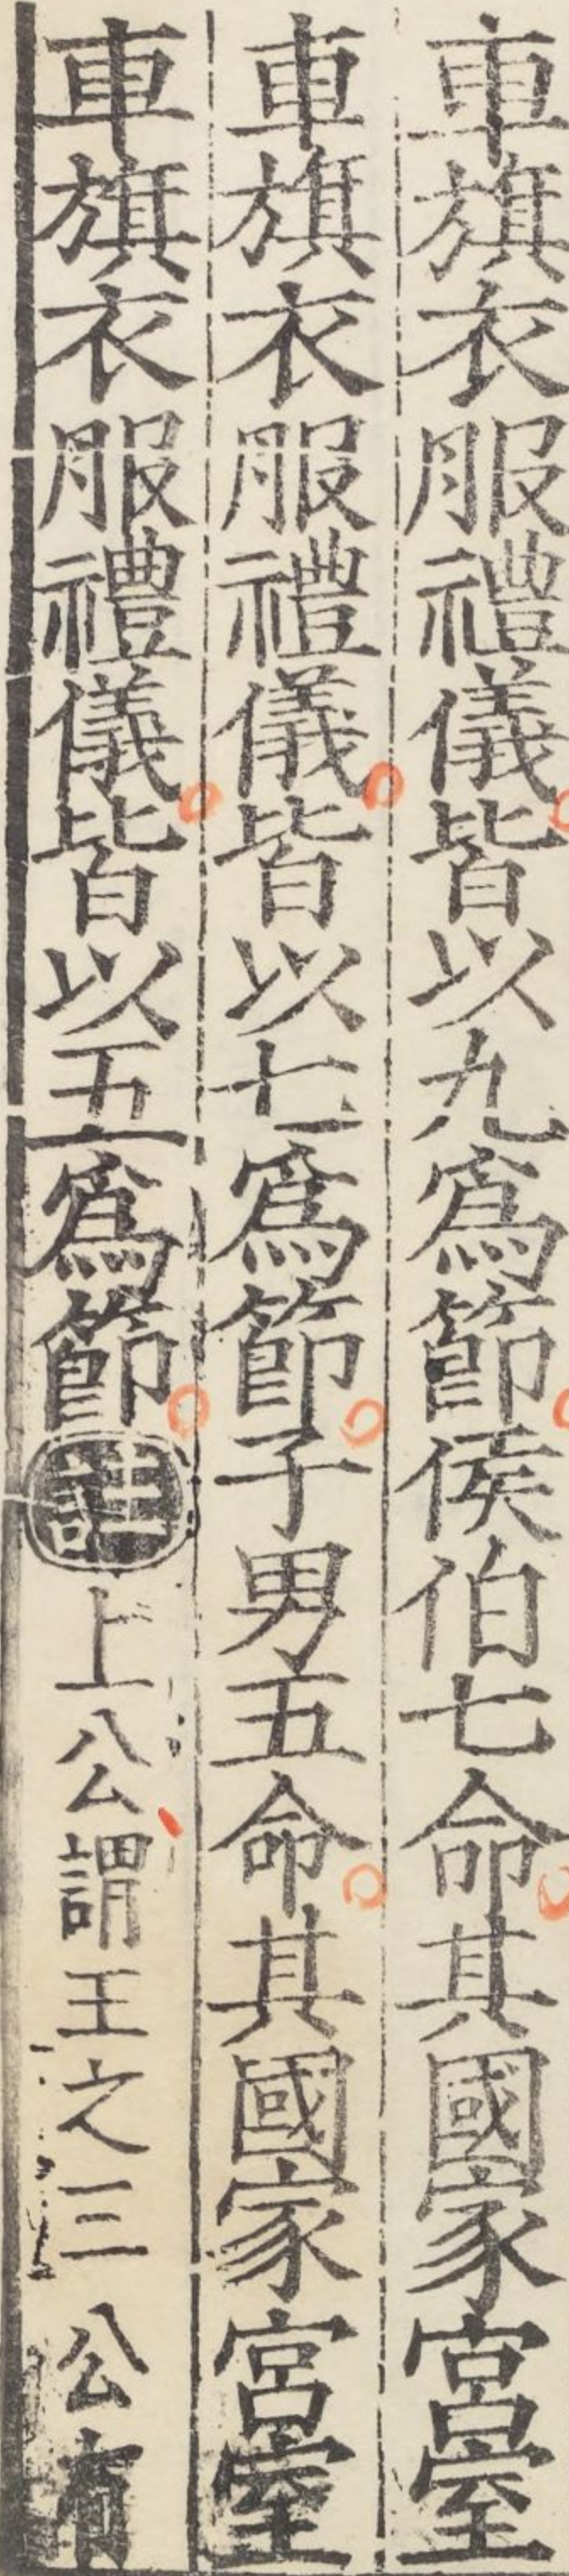 車旗衣服禮儀皆以九爲節侯伯七命其國家宮室
車旗衣服禮儀皆以七爲節子男五命其國家宮室
車旗衣服禮儀皆以五爲節註上公謂王之三公有